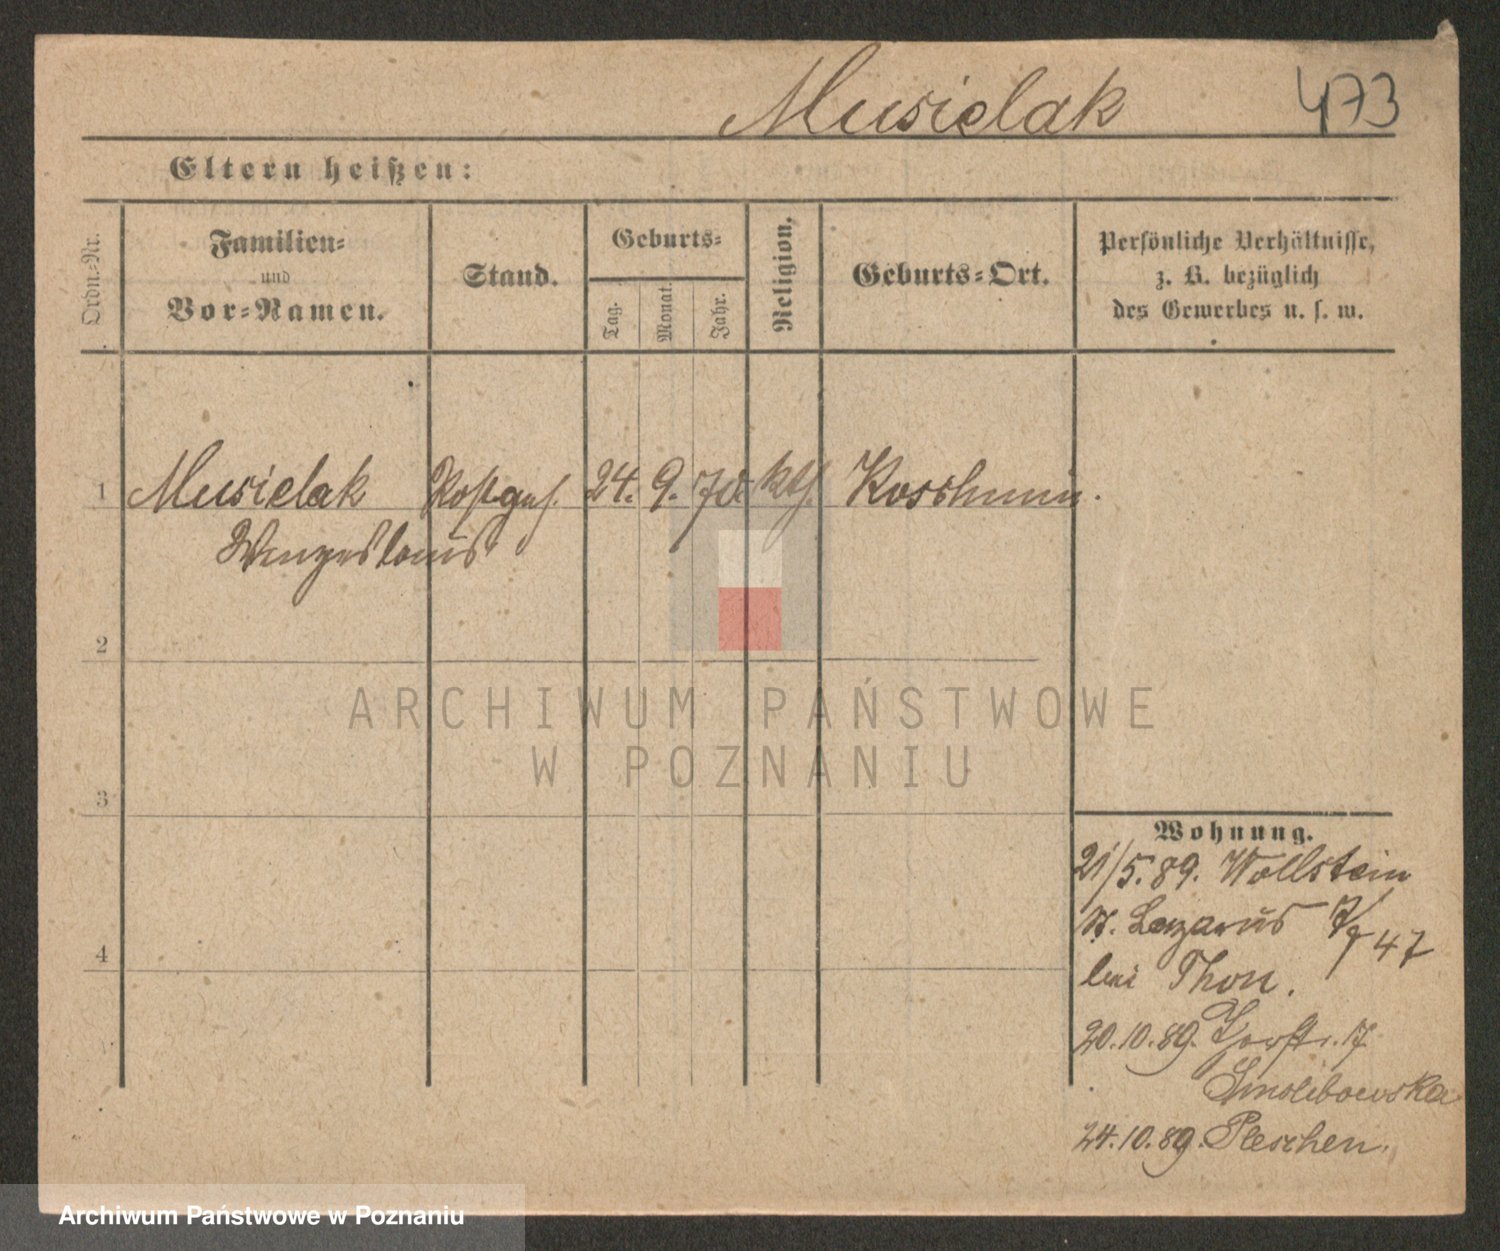 Musielak 473
Eltern heißen:
Ordn.-Nr.
Familien-
und
Vor-Namen.
Stand.
Geburts-
Tag.
Monat.
Jahr.
Religion,
Geburts-Ort.
Persönliche Verhältnisse,
z. B. bezüglich
des Gewerbes u. s. w.
1 Musielak 24. 9. 70. kth. Koschmin.
Wenzeslaus
2
3
4
ARCHIWUM PAŃSTWOWE
W POZNANIU
Wohnung.
21/5.89. Wollstein
St. Lazarus 47
bei Thon.
20.10.89. 17
24.10.89. Pleschen.
Archiwum Państwowe w Poznaniu